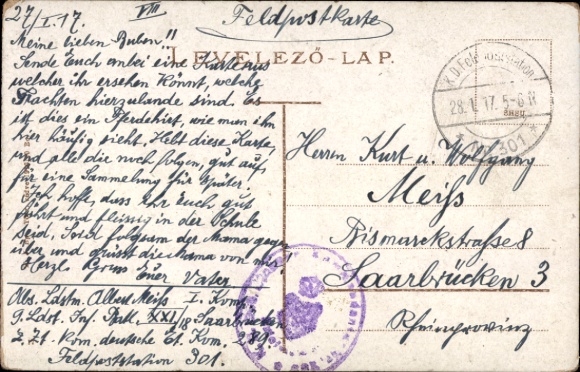 27/I.17. VIII
Feldpostkarte
LEVELEZŐ-LAP.
Meine lieben Buben!!
Sende Euch anbei eine Karte aus
welcher ihr ersehen könnt, welche
Trachten hierzulande sind. Es
ist dies ein Pferdehirt, wie man ihn
hier häufig sieht. Hebt diese Karte,
und alle die noch folgen, gut auf,
für eine Sammlung für später.
Ich hoffe, dass Ihr Euch gut
führt und fleissig in der Schule
seid. Seid folgsam der Mama gegen
über, und grüsst die Mama von mir!
Herzl. Gruss Euer Vater
Abs. Ldstm. Albert Meiss I. Komp.
9. Ldst. Inf. Batl. XXI/8 Saarbrücken
z. Zt. Kom. deutsche Et. Kom. 289.
Feldpoststation 301.
K.D. Feldpoststation
28.1.17. 5-6 N
* No 301 *
Herren Kurt u. Wolfgang
Meiss
Bismarckstrasse 8
Saarbrücken 3
Rheinprovinz